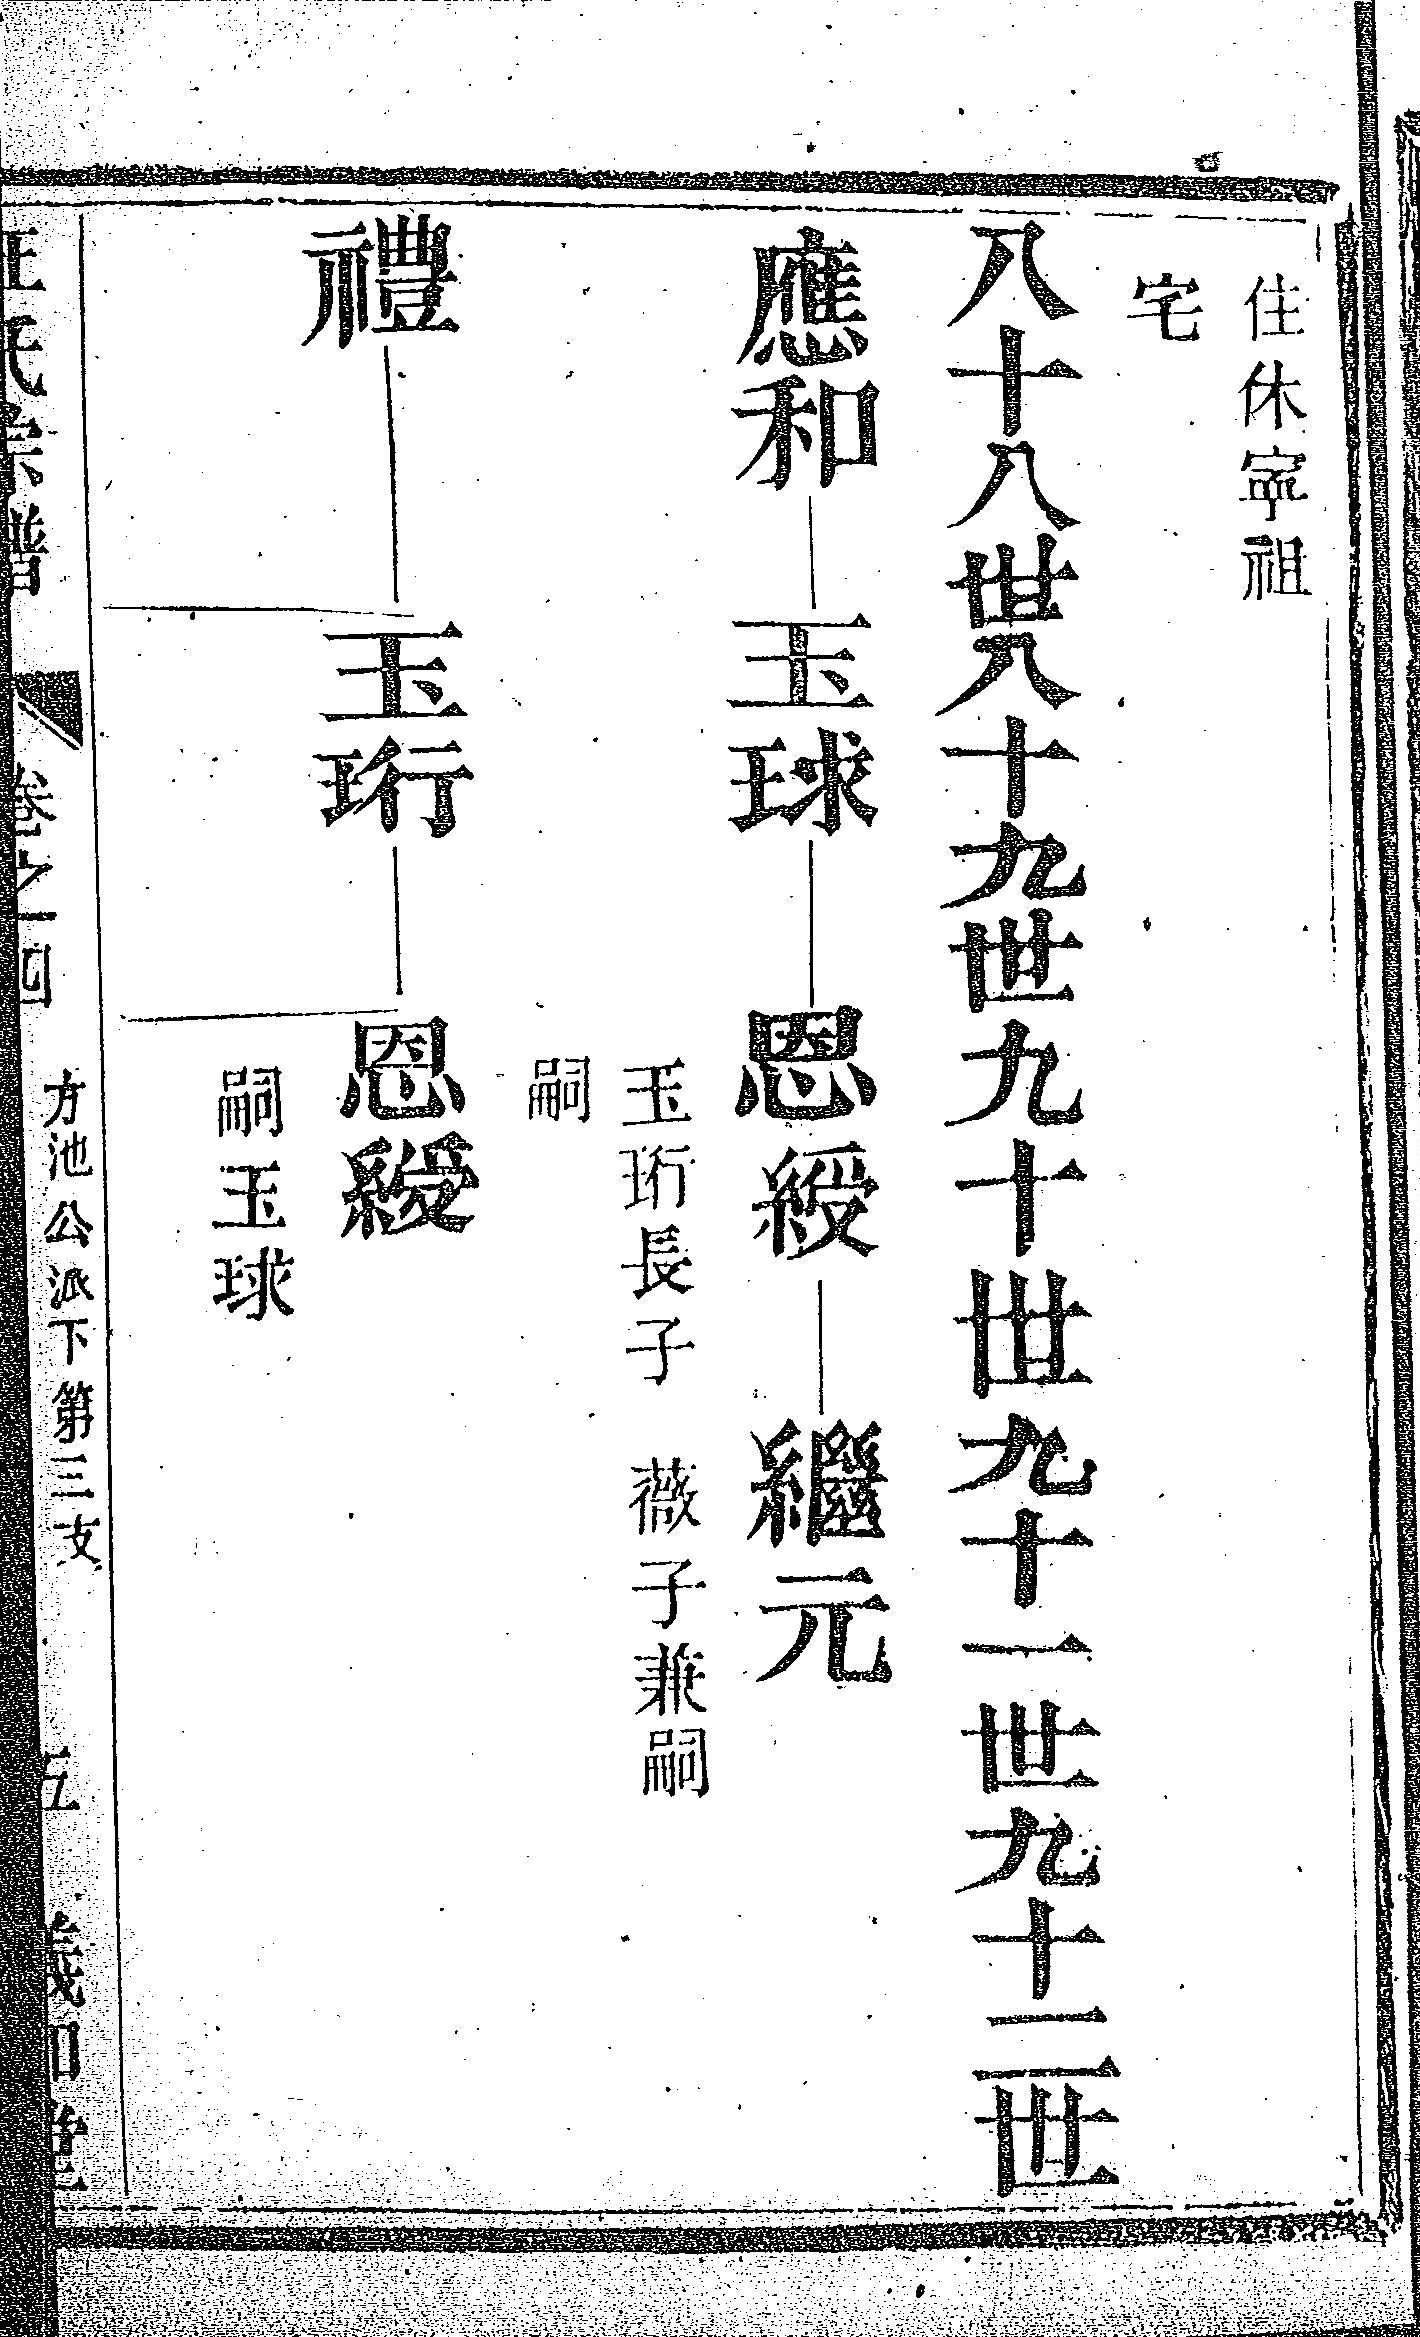 住休寧祖
宅
八十八世八十九世九十世九十一世九十二世
應和 玉球 恩綬 繼元
玉珩長子 薇子兼嗣
嗣
禮 玉珩 恩綬
嗣玉球
汪氏宗譜 卷之四 方池公派下第三支 五